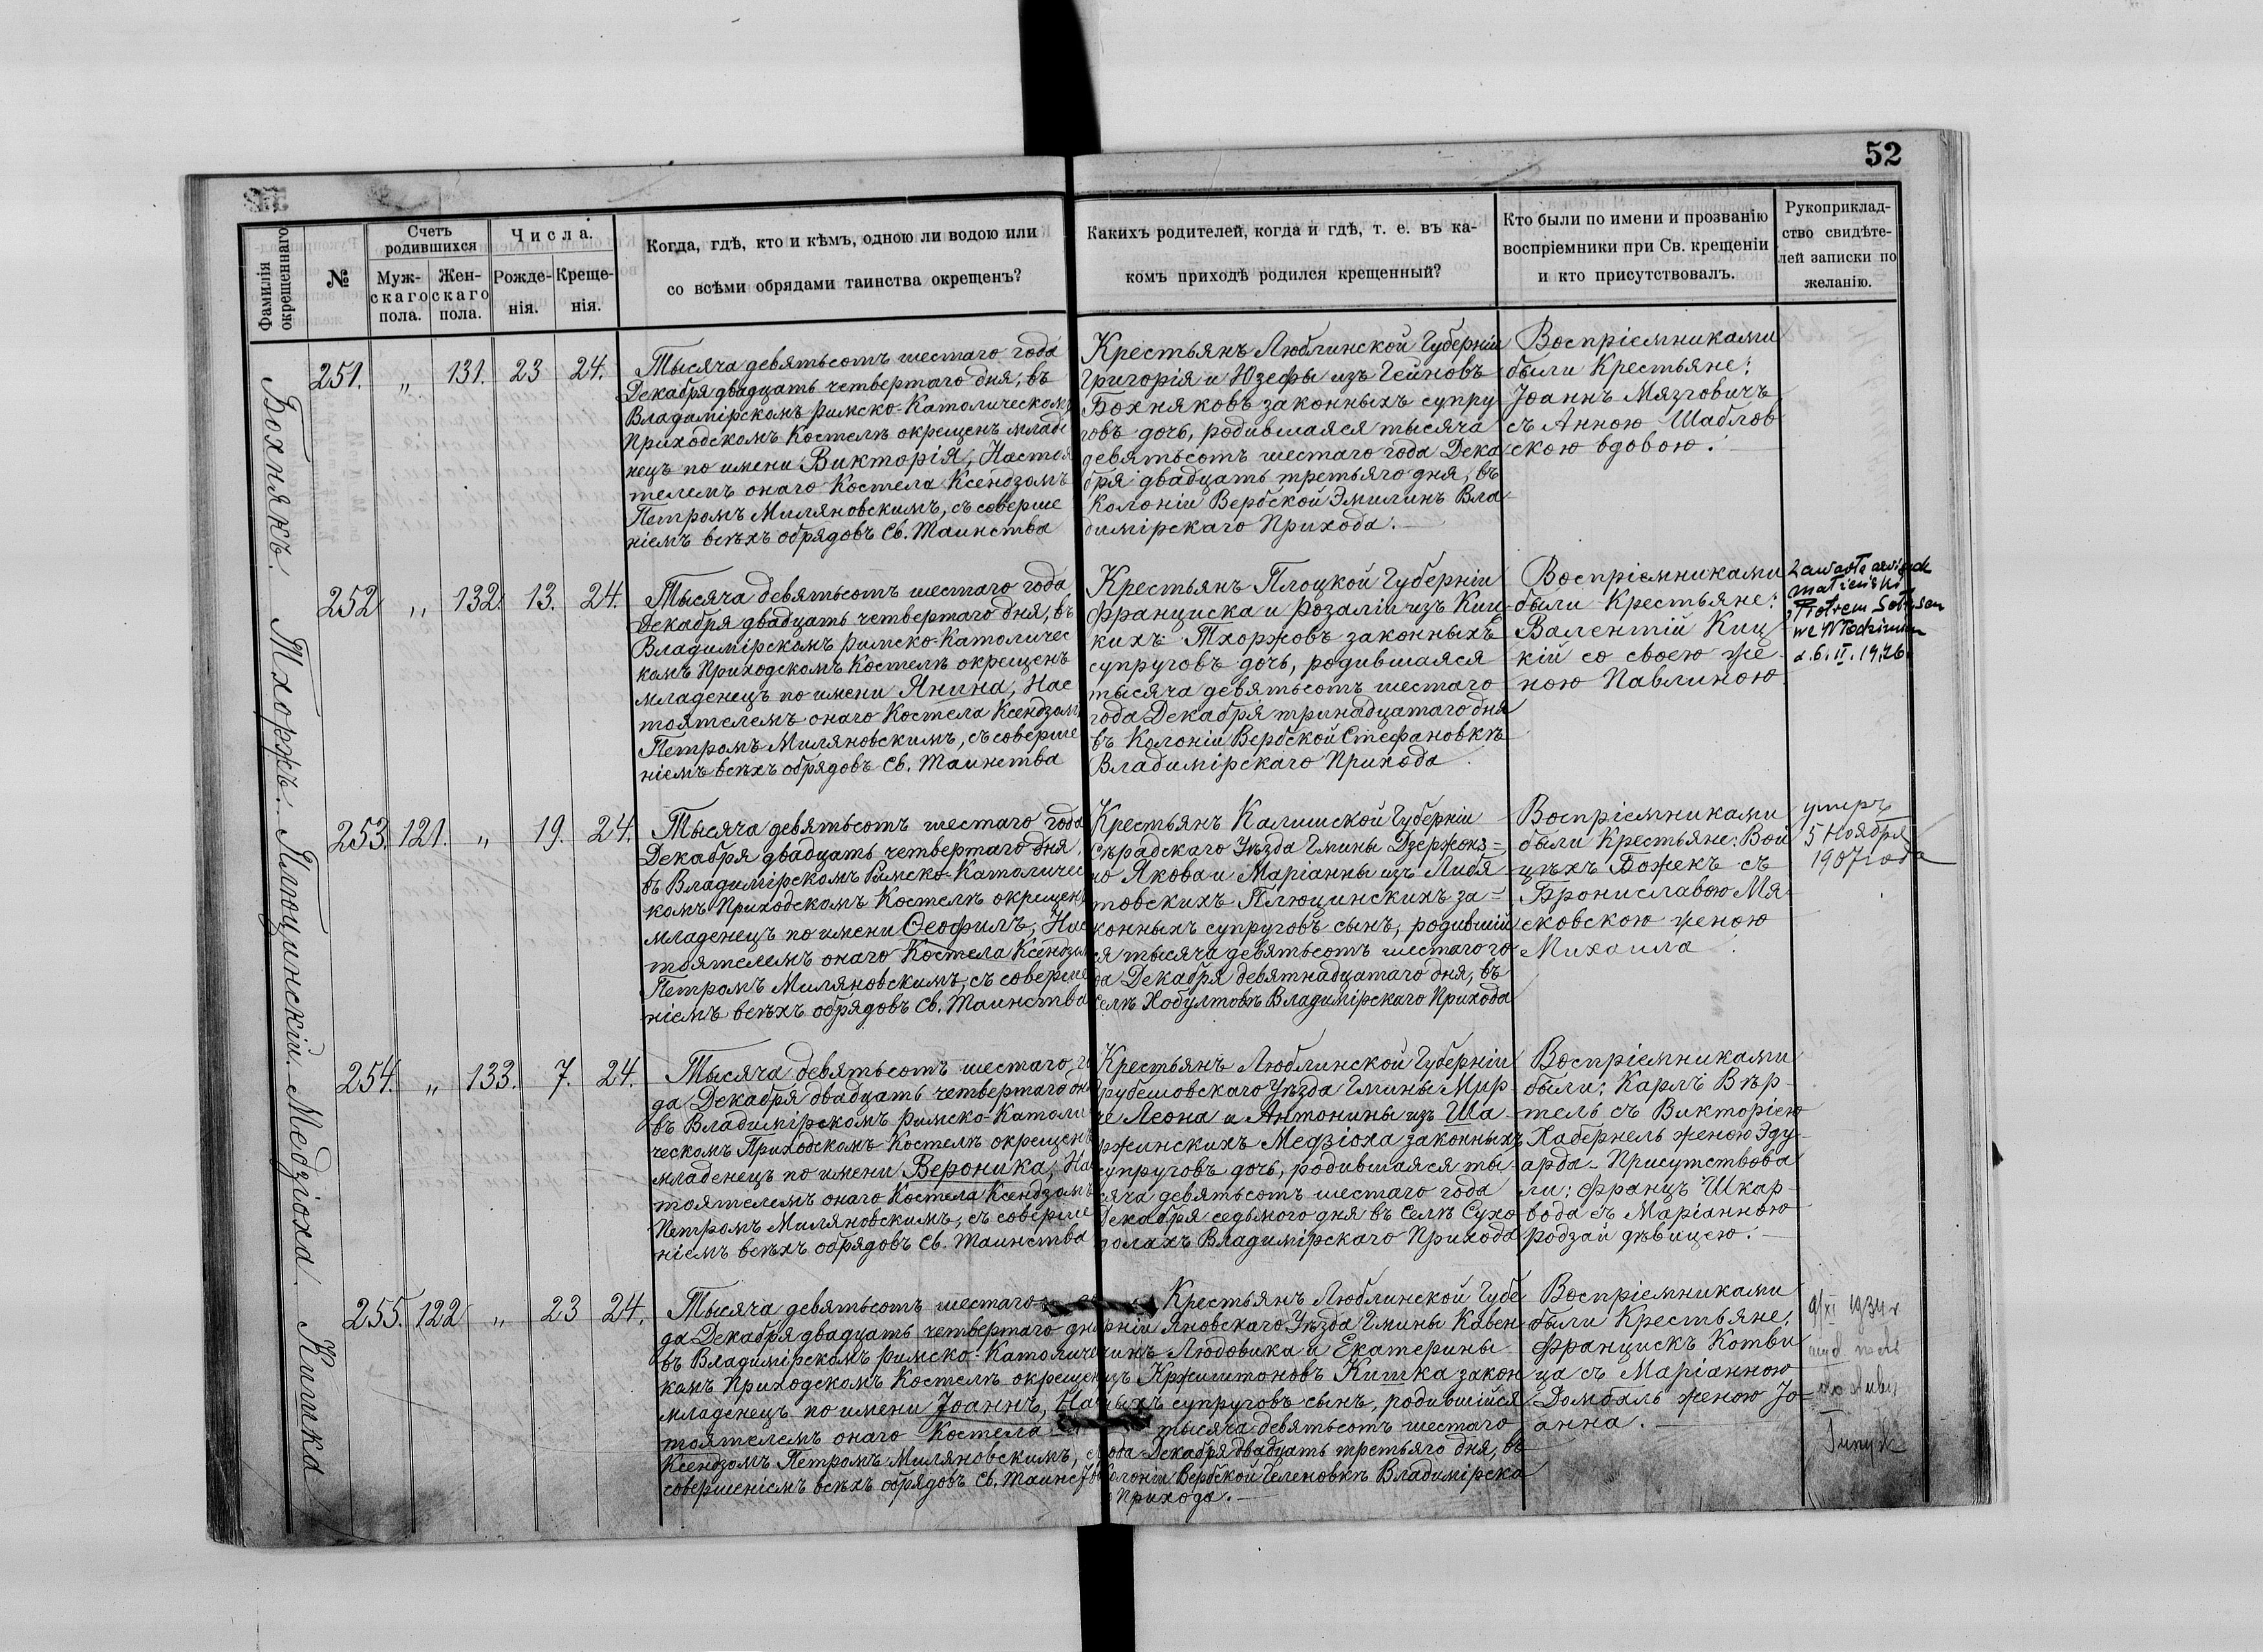 52
Фамилія окрещеннаго
№
Счетъ родившихся
Муж-
скаго
пола.
Жен-
скаго
пола.
Числа.
Рожде-
нія.
Креще-
нія.
Когда, гдѣ, кто и кѣмъ, одною ли водою или
со всѣми обрядами таинства окрещенъ?
Какихъ родителей, когда и гдѣ, т. е. въ ка-
комъ приходѣ родился крещенный?
Кто были по имени и прозванію
воспріемники при Св. крещеніи
и кто присутствовалъ.
Рукоприклад-
ство свидѣте-
лей записки по
желанію.
Бохнякъ.
251. „ 131. 23 24.
Тысяча девятьсотъ шестаго года
Декабря двадцать четвертаго дня, въ
Владимірскомъ Римско-Католическомъ
Приходскомъ Костелѣ окрещенъ младе
нецъ по имени Викторія, Настоя
телемъ онаго Костела Ксендзомъ
Петромъ Миляновскимъ, съ соверше
ніемъ всѣхъ обрядовъ Св. Таинства
Крестьянъ Люблинской Губерніи
Григорія и Юзефы изъ Гейновъ
Бохняковъ законныхъ супру
говъ дочь, родившаяся тысяча
девятьсотъ шестаго года Дека
бря двадцать третьяго дня, въ
Колоніи Вербской Эмилинъ Вла
димірскаго Прихода.
Воспріемниками
были Крестьяне:
Іоаннъ Мязговичъ
съ Анною Шаблов
скою вдовою.
Тхоржъ.
252 „ 132. 13. 24.
Тысяча девятьсотъ шестаго года
Декабря двадцать четвертаго дня, въ
Владимірскомъ Римско-Католичес
комъ Приходскомъ Костелѣ окрещенъ
младенецъ по имени Янина, Нас
тоятелемъ онаго Костела Ксендзомъ
Петромъ Миляновскимъ, съ соверше
ніемъ всѣхъ обрядовъ Св. Таинства
Крестьянъ Плоцкой Губерніи
Франциска и Розаліи изъ Киц
кихъ Тхоржовъ законныхъ
супруговъ дочь, родившаяся
тысяча девятьсотъ шестаго
года Декабря тринадцатаго дня
въ Колоніи Вербской Стефановкѣ
Владимірскаго Прихода.
Воспріемниками
были Крестьяне:
Валентій Киц
кій со своею же
ною Павлиною
Zawarła związek
małżeński
z Piotrem
we Włodzimierzu
d. 6. II. 1926
Плюцинскій.
253. 121. „ 19. 24.
Тысяча девятьсотъ шестаго года
Декабря двадцать четвертаго дня,
въ Владимірскомъ Римско-Католичес
комъ Приходскомъ Костелѣ окрещенъ
младенецъ по имени Ѳеофилъ, Нас
тоятелемъ онаго Костела Ксендзомъ
Петромъ Миляновскимъ, съ соверше
ніемъ всѣхъ обрядовъ Св. Таинства
Крестьянъ Калишской Губерніи
Сѣрадскаго Уѣзда Гмины Дзержонз=
но Якова и Маріанны изъ Либя
товскихъ Плюцинскихъ за=
конныхъ супруговъ сынъ, родившій
ся тысяча девятьсотъ шестаго го
да Декабря девятнадцатаго дня, въ
Селѣ Хобултовѣ Владимірскаго Прихода
Воспріемниками
были Крестьяне: Вой
цѣхъ Божекъ съ
Брониславою Мя
сковскою женою
Михаила.
умеръ
5 Ноября
1907 года
Медзіоха.
254. „ 133. 7. 24.
Тысяча девятьсотъ шестаго го
да Декабря двадцать четвертаго дня
въ Владимірскомъ Римско-Католи
ческомъ Приходскомъ Костелѣ окрещенъ
младенецъ по имени Вероника, Нас
тоятелемъ онаго Костела Ксендзомъ
Петромъ Миляновскимъ, съ соверше
ніемъ всѣхъ обрядовъ Св. Таинства
Крестьянъ Люблинской Губерніи
Грубешовскаго Уѣзда Гмины Мир-
че Леона и Антонины изъ Ша-
ржинскихъ Медзіоха законныхъ
супруговъ дочь, родившаяся ты-
сяча девятьсотъ шестаго года
Декабря седьмого дня въ Селѣ Сухо
долахъ Владимірскаго Прихода
Воспріемниками
были: Карлъ Вѣр-
тель съ Викторіею
Хабернель женою Эду-
арда. Присутствова
ли: Францъ Шкар-
вода съ Маріанною
Родзай дѣвицею.
Китка
255. 122 „ 23 24.
Тысяча девятьсотъ шестаго го
да Декабря двадцать четвертаго дня
въ Владимірскомъ Римско-Католичес
комъ Приходскомъ Костелѣ окрещенъ
младенецъ по имени Іоаннъ, Нас
тоятелемъ онаго Костела
Ксендзомъ Петромъ Миляновскимъ, съ
совершеніемъ всѣхъ обрядовъ Св. Таинства
Крестьянъ Люблинской Губе
рніи Яновскаго Уѣзда Гмины Кавен
чинъ Людовика и Екатерины
изъ Кржиштоновъ Китка закон
ныхъ супруговъ сынъ, родившійся
тысяча девятьсотъ шестаго
года Декабря двадцать третьяго дня, въ
Колоніи Вербской Геленовкѣ Владимірска
го Прихода.
Воспріемниками
были Крестьяне:
Францискъ Котви
ца съ Маріанною
Домбаль женою Іо-
анна.
9/XI 1934 r